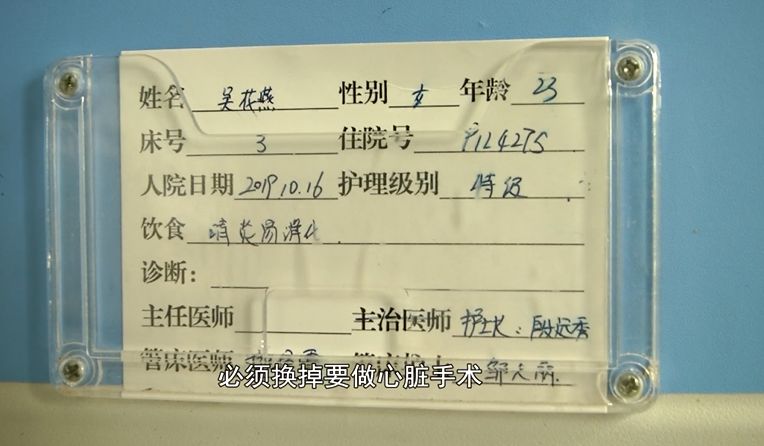 姓名 吴花燕 性别 女 年龄 23
床号 3 住院号 P124275
入院日期 2019.10.16 护理级别 特级
饮食 清淡易消化
诊断:
主任医师 主治医师 护士长:段远秀
管床医师 管床护士 邹大丽
必须换掉要做心脏手术